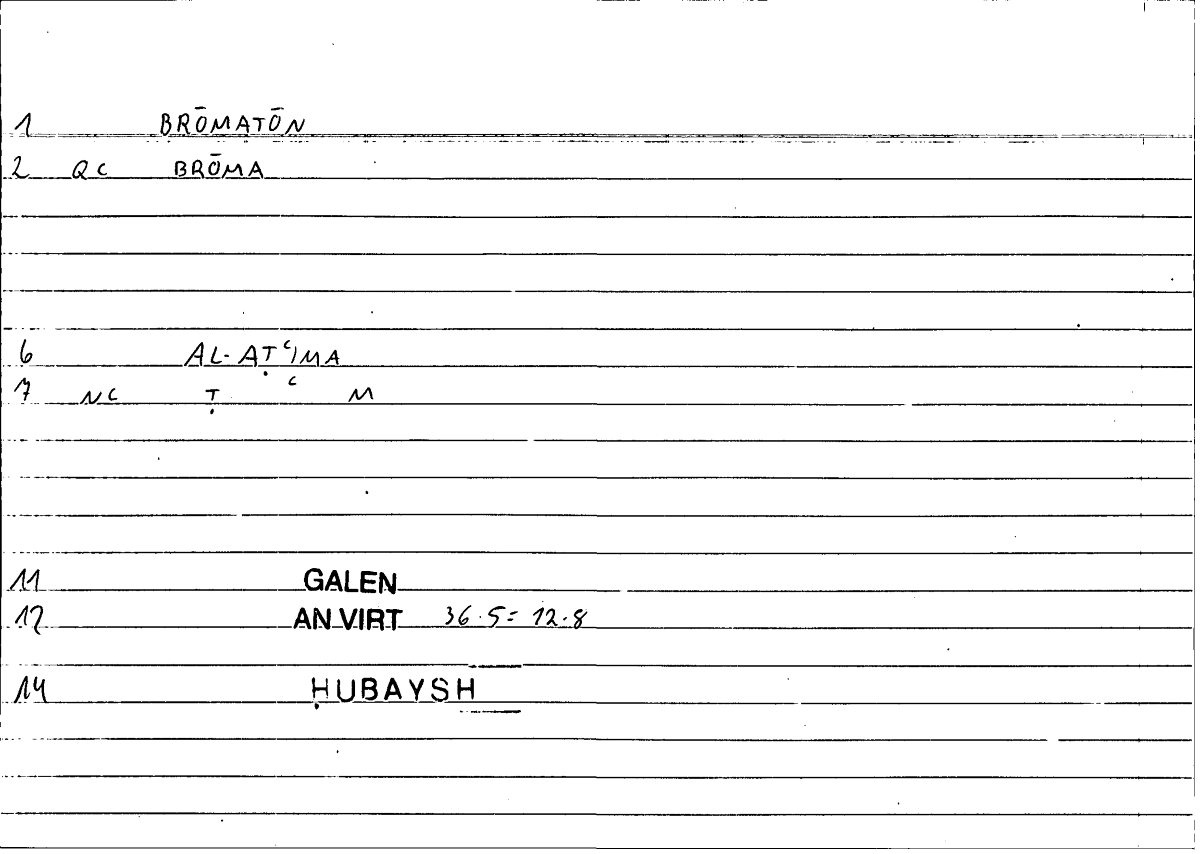 1 BRŌMATŌN
2 QC BRŌMA
6 AL-AṬʿIMA
7 NC Ṭ ʿ M
11 GALEN
12 AN VIRT 36.5= 12.8
14 ḤUBAYSH